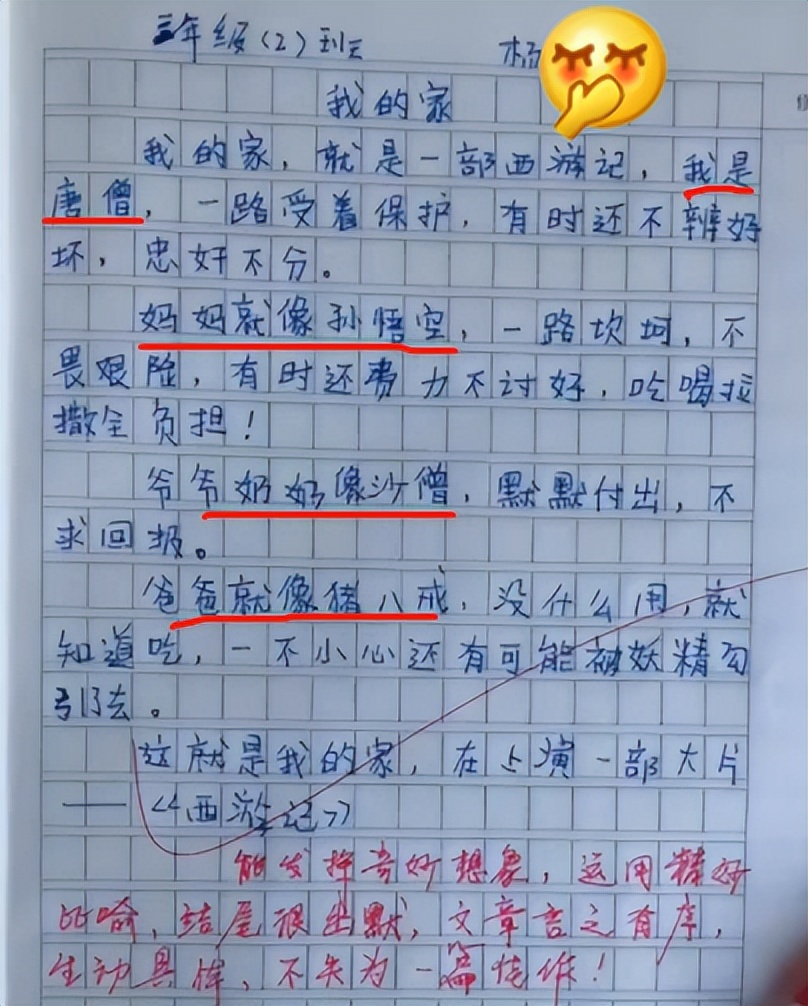 三年级(2)班 杨
我的家
我的家，就是一部西游记，我是
唐僧，一路受着保护，有时还不辨好
坏，忠奸不分。
妈妈就像孙悟空，一路坎坷，不
畏艰险，有时还费力不讨好，吃喝拉
撒全负担！
爷爷奶奶像沙僧，默默付出，不
求回报。
爸爸就像猪八戒，没什么用，就
知道吃，一不小心还有可能被妖精勾
引了去。
这就是我的家，在上演一部大片
——《西游记》
能发挥奇妙想象，运用精妙
比喻，结尾很幽默，文章言之有序，
生动具体，不失为一篇佳作！